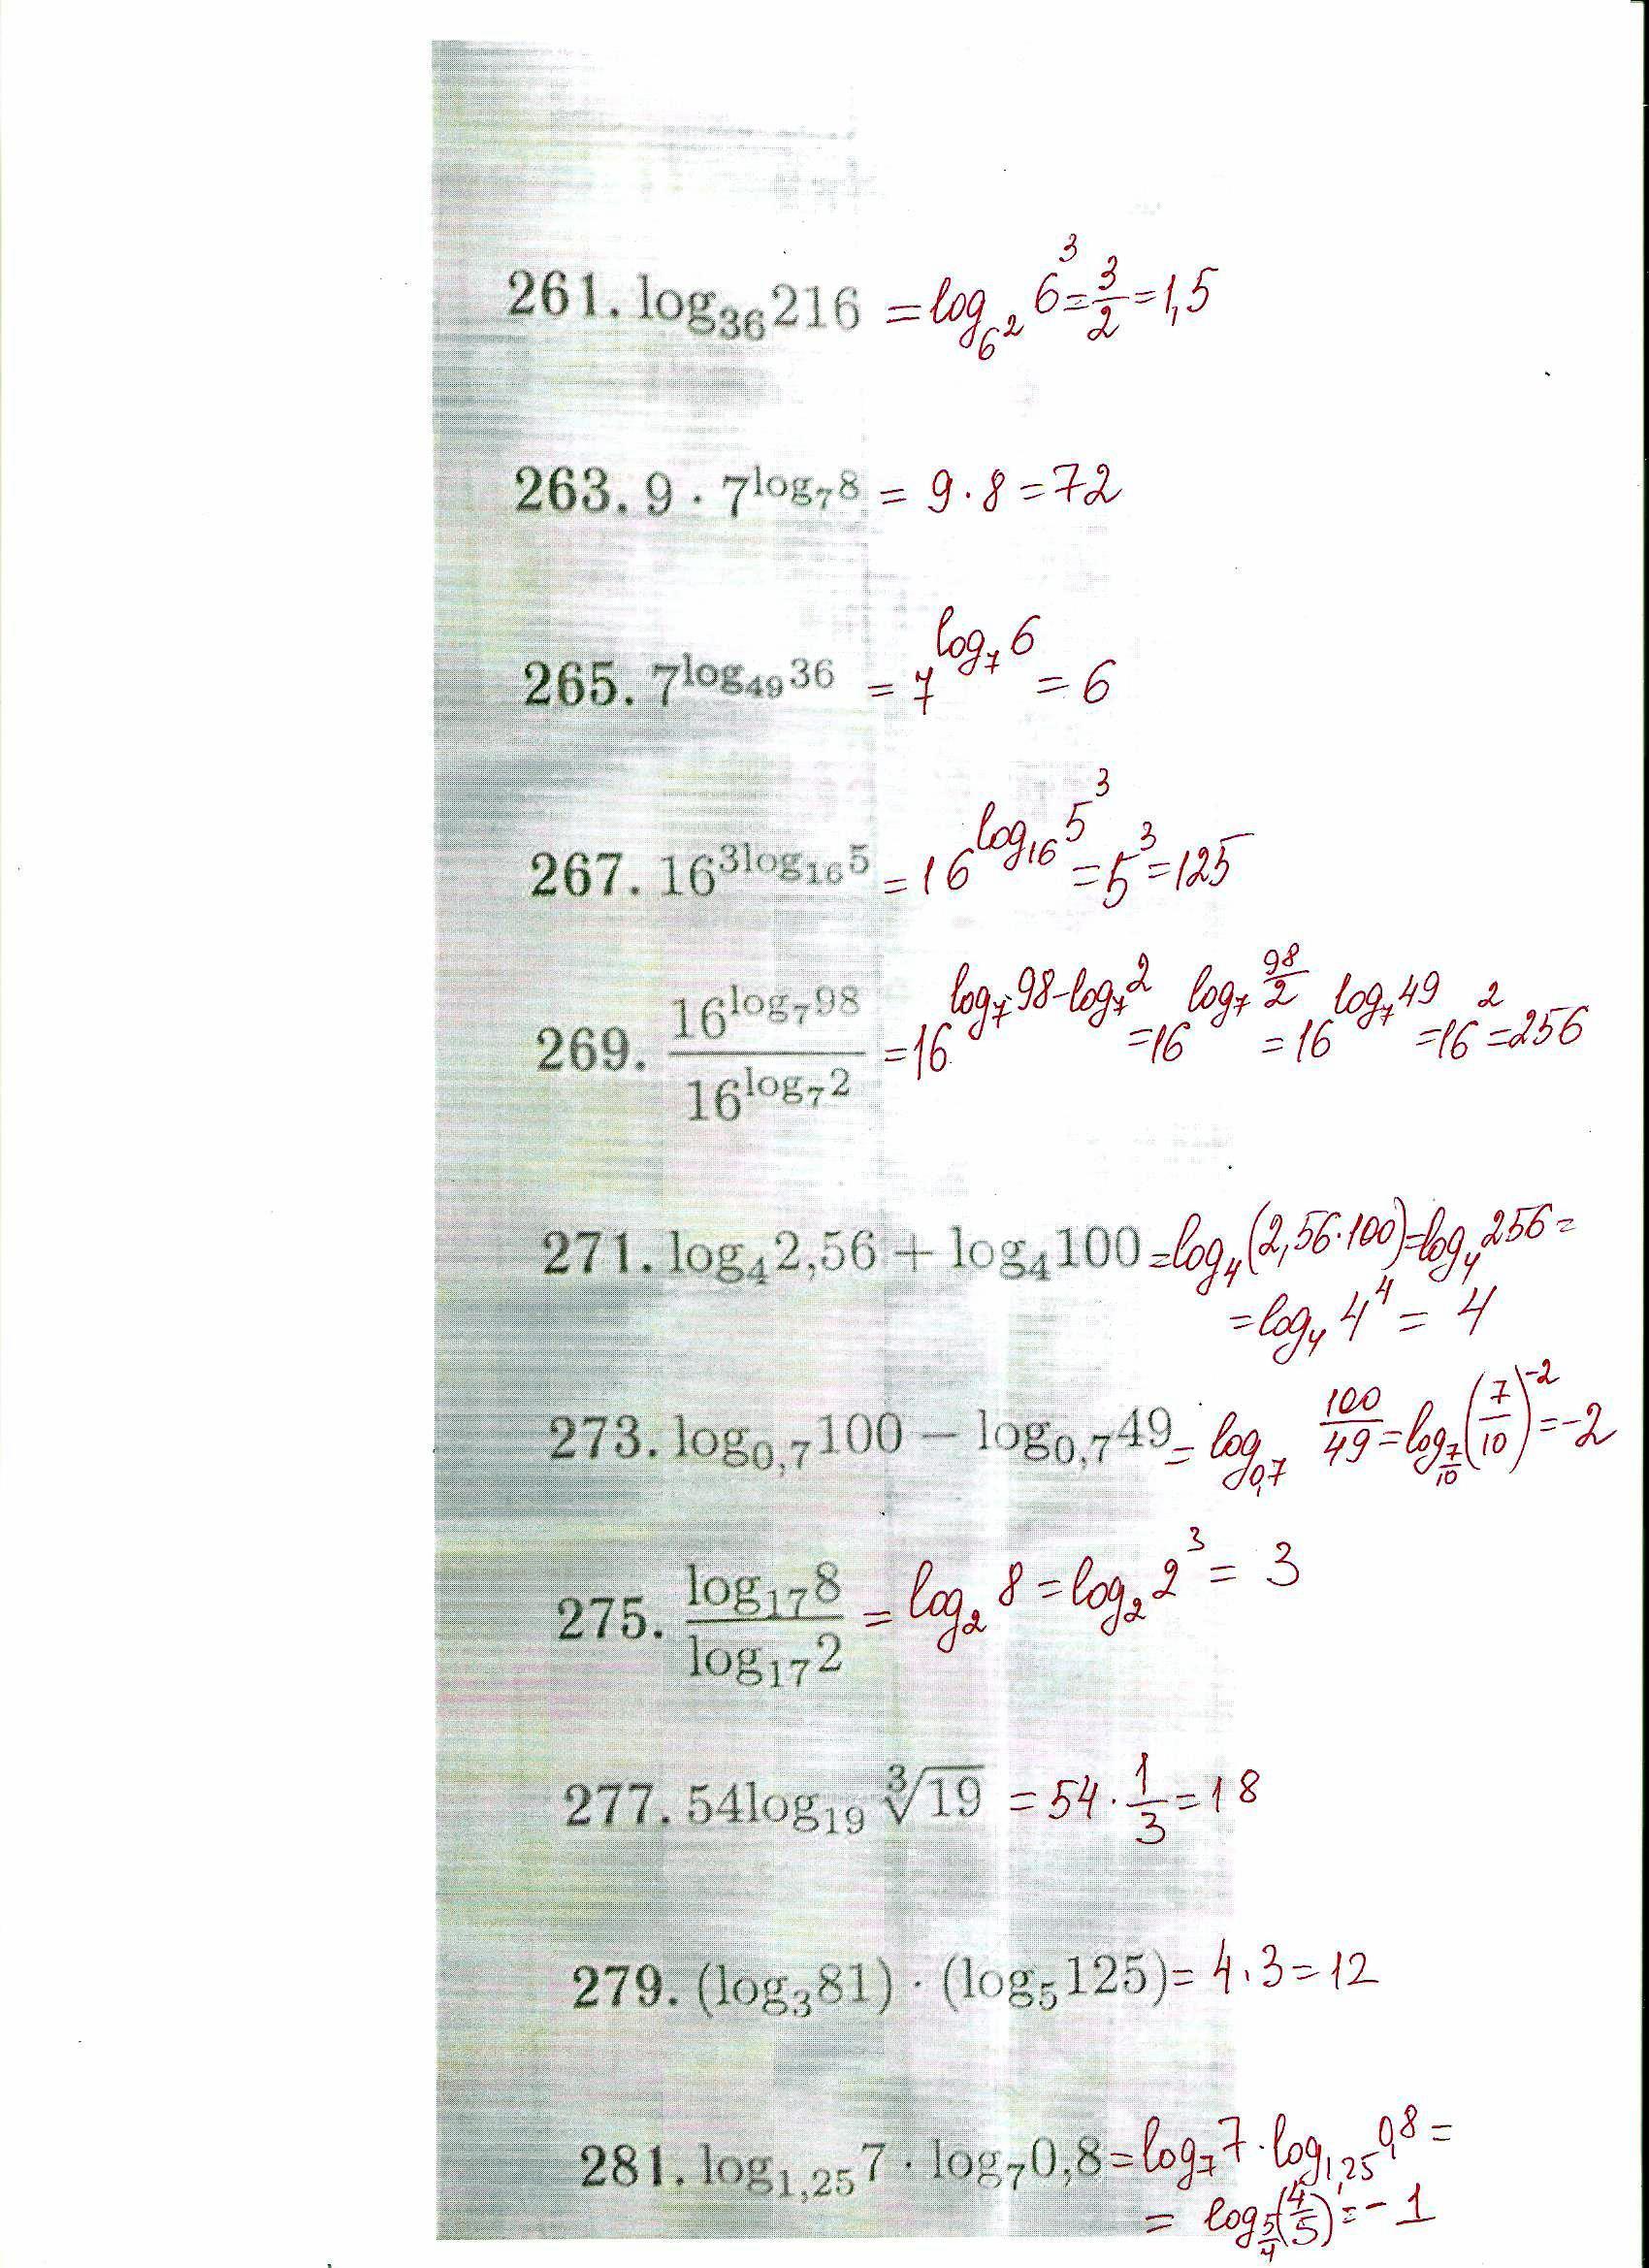 261. log₃₆216 = log_{6²} 6³ = 3/2 = 1,5
263. 9 · 7^{log₇8} = 9 · 8 = 72
265. 7^{log₄₉36} = 7^{log₇6} = 6
267. 16^{3log₁₆5} = 16^{log₁₆5³} = 5³ = 125
269. 16^{log₇98} / 16^{log₇2} = 16^{log₇98-log₇2} = 16^{log₇ 98/2} = 16^{log₇49} = 16² = 256
271. log₄2,56 + log₄100 = log₄(2,56·100) = log₄256 =
= log₄4⁴ = 4
273. log_{0,7}100 − log_{0,7}49 = log_{0,7} 100/49 = log_{7/10}(7/10)^{-2} = -2
275. log₁₇8 / log₁₇2 = log₂8 = log₂2³ = 3
277. 54log₁₉∛19 = 54 · 1/3 = 18
279. (log₃81) · (log₅125) = 4·3 = 12
281. log_{1,25}7 · log₇0,8 = log₇7 · log_{1,25}0,8 =
= log_{5/4}(4/5) = -1